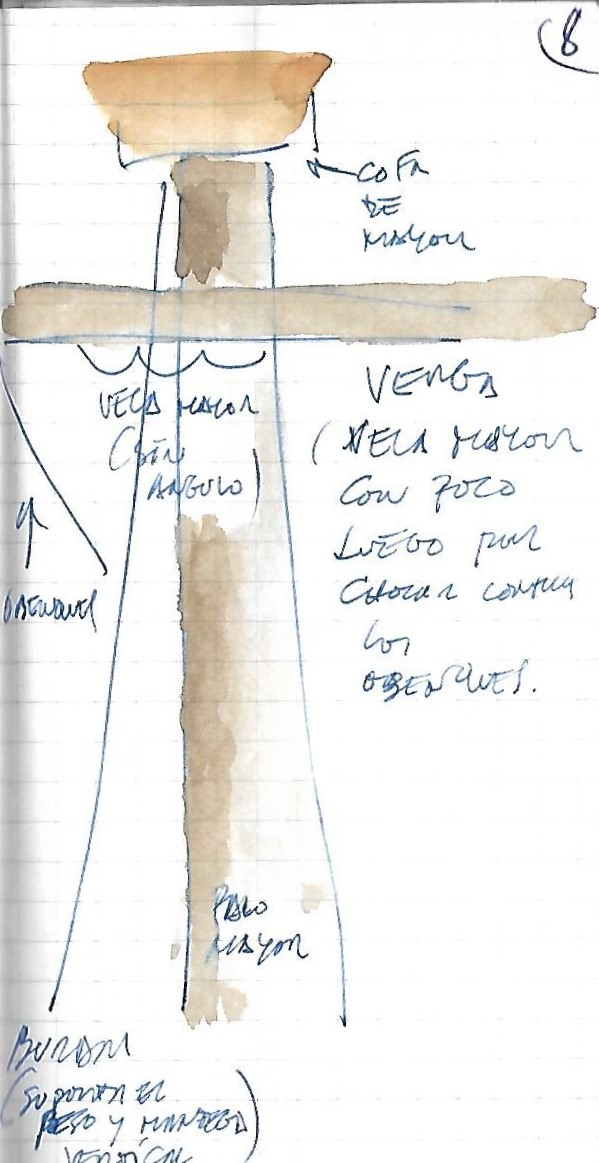 8
COFA
DE
MAYOR
VERGA
VELA MAYOR
(SIN
ANGULO)
(VELA MAYOR
CON POCO
LUEGO POR
CHOCAR CONTRA
LOS
OBENQUES.
OBENQUES
PALO
MAYOR
BURDA
(SOPORTAN EL
PESO Y MANTEGA)
VERTICAL